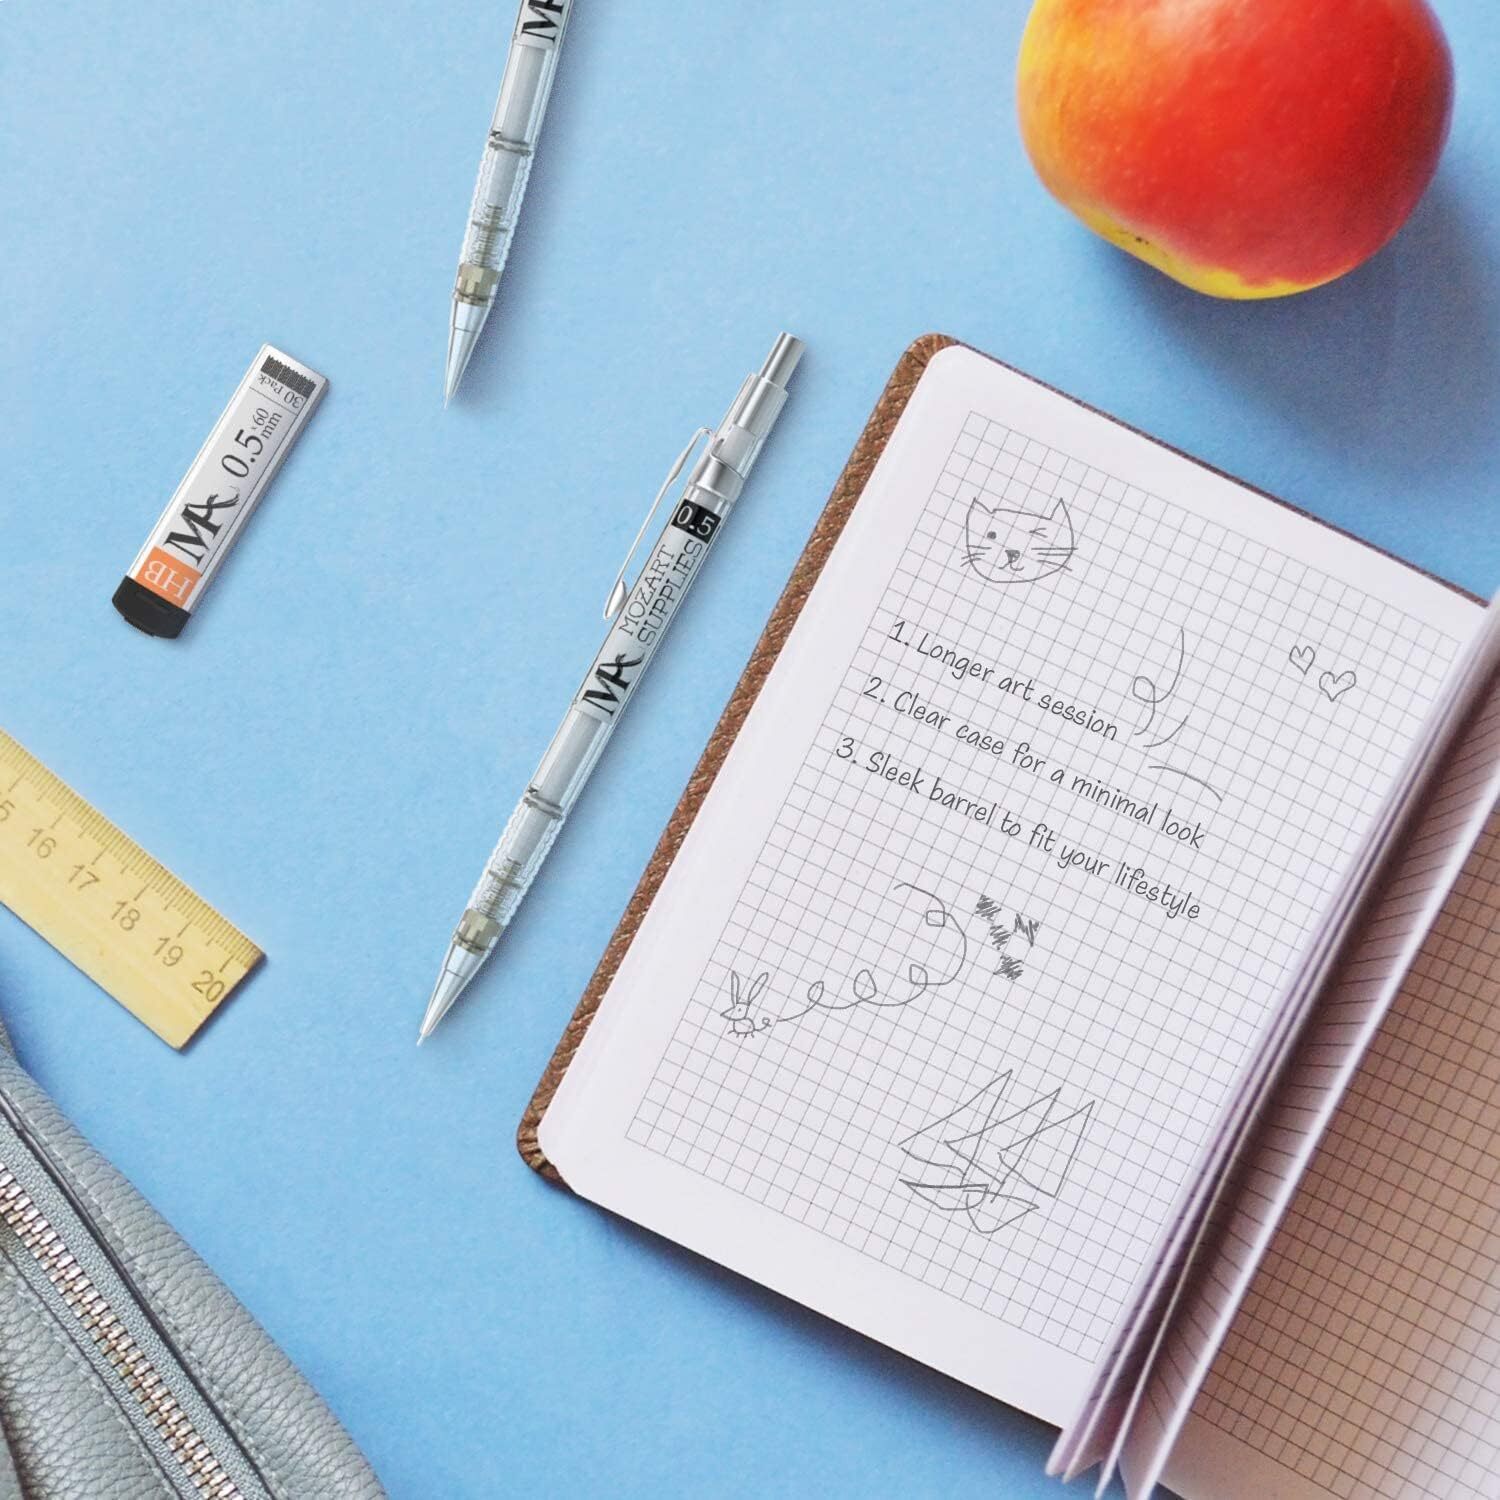 MA
30 Pack
0.5×60 mm
MA
HB
0.5
MOZART
SUPPLIES
MA
1. Longer art session
2. Clear case for a minimal look
3. Sleek barrel to fit your lifestyle
16
17
18
19
20